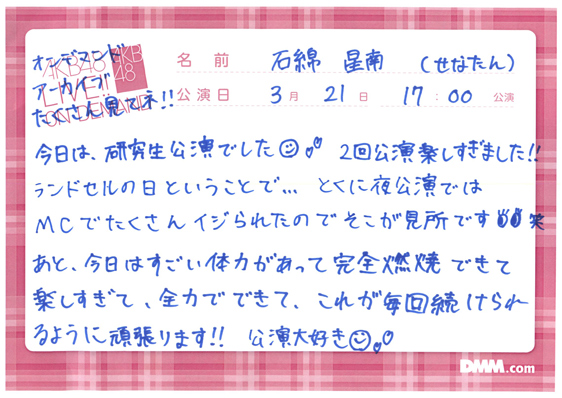 オンデマンド
アーカイブ
たくさん見てネ!!
AKB48
LIVE!!
ON DEMAND
AKB
48
名前 石綿 星南 (せなたん)
公演日 3月 21日 17:00 公演
今日は、研究生公演でした 2回公演楽しすぎました!!
ランドセルの日ということで... とくに夜公演では
MCでたくさんイジられたのでそこが見所です 笑
あと、今日はすごい体力があって完全燃焼できて
楽しすぎて、全力でできて、これが毎回続けられ
るように頑張ります!! 公演大好き
DMM.com